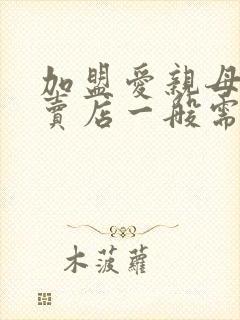 加盟愛親母
賣店一般需
木菠蘿